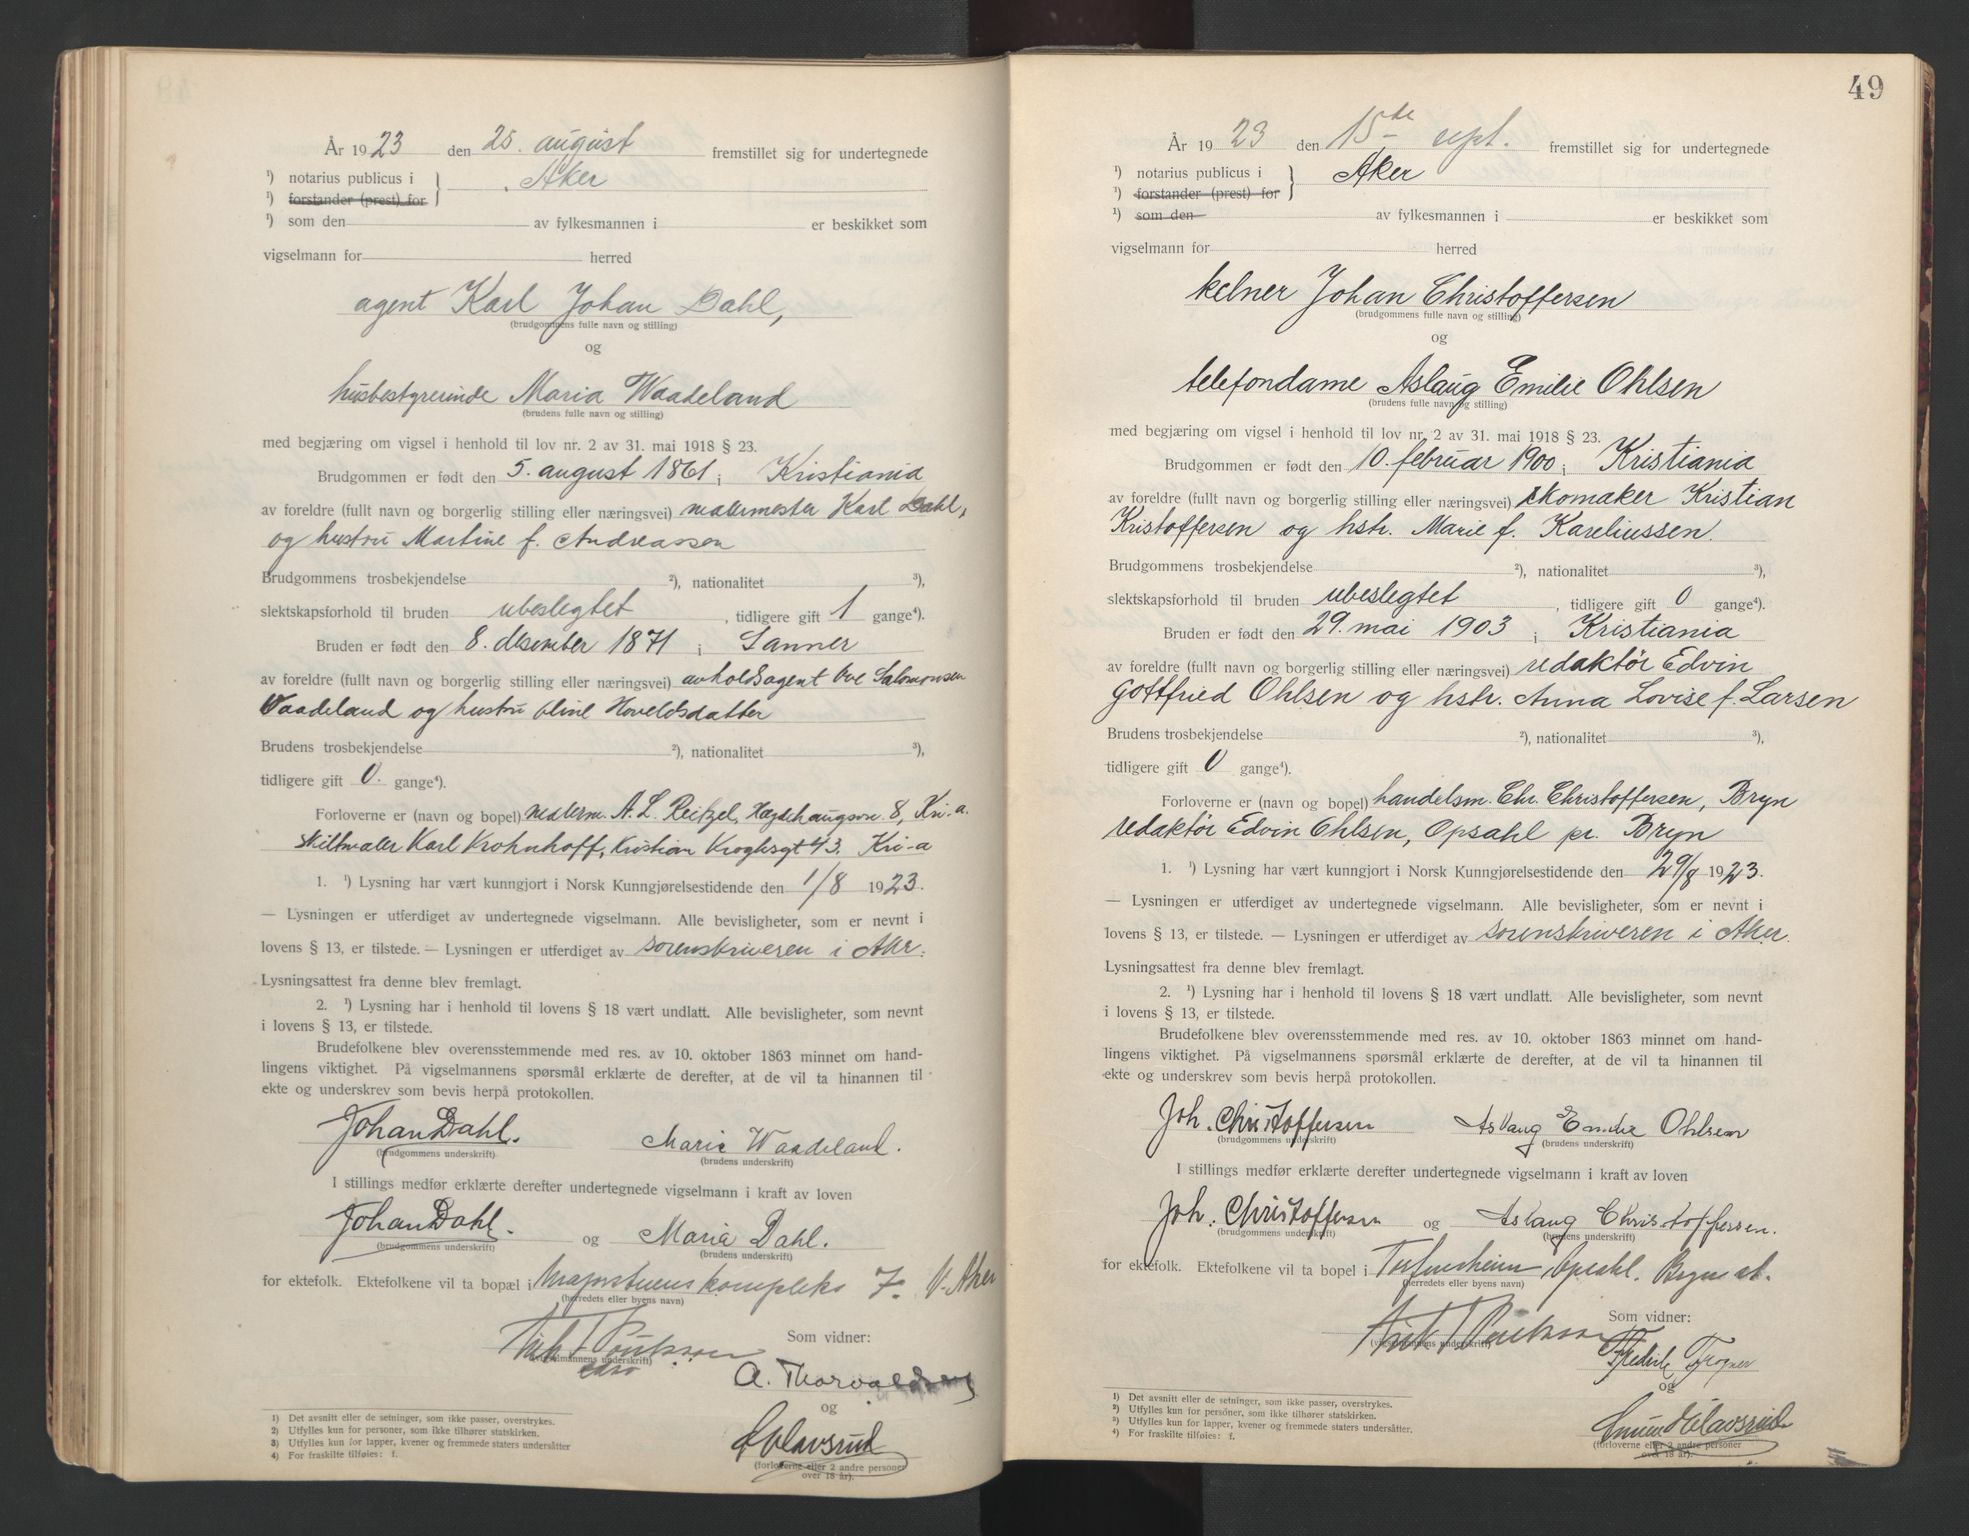 År 1923 den 25. august fremstillet sig for undertegnede
¹) notarius publicus i } Aker
¹) forstander (prest) for
¹) som den av fylkesmannen i er beskikket som
vigselmann for herred
agent Karl Johan Dahl,
(brudgommens fulle navn og stilling)
og
husbestyrerinde Maria Waadeland
(brudens fulle navn og stilling)
med begjæring om vigsel i henhold til lov nr. 2 av 31. mai 1918 § 23.
Brudgommen er født den 5. august 1861 i Kristiania
av foreldre (fullt navn og borgerlig stilling eller næringsvei) malermester Karl Dahl,
og hustru Martine f. Andreassen
Brudgommens trosbekjendelse ²), nationalitet ³),
slektskapsforhold til bruden ubeslegtet, tidligere gift 1 gange⁴).
Bruden er født den 8. desember 1871 i Sanner
av foreldre (fullt navn og borgerlig stilling eller næringsvei) avholdsagent Ove Salomonsen
Waadeland og hustru Oline Hoveldsdatter
Brudens trosbekjendelse ²), nationalitet ³),
tidligere gift 0. gange⁴).
Forloverne er (navn og bopel) malerm. A. L. Reitzel, Hægdehaugsvn. 8, Kr.-a.
skiltmaler Karl Krohnhoff, Kristian Kroghsgt 43. Kr-a
1. ¹) Lysning har vært kunngjort i Norsk Kunngjørelsestidende den 1/8 1923.
— Lysningen er utferdiget av undertegnede vigselmann. Alle bevisligheter, som er nevnt i
lovens § 13, er tilstede. — Lysningen er utferdiget av sorenskriveren i Aker.
Lysningsattest fra denne blev fremlagt.
2. ¹) Lysning har i henhold til lovens § 18 vært undlatt. Alle bevisligheter, som nevnt
i lovens § 13, er tilstede.
Brudefolkene blev overensstemmende med res. av 10. oktober 1863 minnet om hand-
lingens viktighet. På vigselmannens spørsmål erklærte de derefter, at de vil ta hinannen til
ekte og underskrev som bevis herpå protokollen.
Johan Dahl. Maria Waadeland.
(brudgommens underskrift) (brudens underskrift)
I stillings medfør erklærte derefter undertegnede vigselmann i kraft av loven
Johan Dahl. og Maria Dahl.
(brudgommens underskrift) (brudens underskrift)
for ektefolk. Ektefolkene vil ta bopæl i Majorstuens kompleks 7 V. Aker
(herredets eller byens navn)
Som vidner:
(vigselmannens underskrift)
A. Thorvaldsen
og
Olavsrud
(forloverne eller 2 andre personer
over 18 år).
1) Det avsnitt eller de setninger, som ikke passer, overstrykes.
2) Utfylles kun for personer, som ikke tilhører statskirken.
3) Utfylles kun for lapper, kvener og fremmede staters undersåtter
4) For fraskilte tilføies: f.
49
År 1923 den 15de sept. fremstillet sig for undertegnede
¹) notarius publicus i } Aker
¹) forstander (prest) for
¹) som den av fylkesmannen i er beskikket som
vigselmann for herred
kelner Johan Christoffersen
(brudgommens fulle navn og stilling)
og
telefondame Aslaug Emilie Ohlsen
(brudens fulle navn og stilling)
med begjæring om vigsel i henhold til lov nr. 2 av 31. mai 1918 § 23.
Brudgommen er født den 10. februar 1900 i Kristiania
av foreldre (fullt navn og borgerlig stilling eller næringsvei) skomaker Kristian
Kristoffersen og hstr. Marie f. Kareliussen.
Brudgommens trosbekjendelse ²), nationalitet ³),
slektskapsforhold til bruden ubeslegtet, tidligere gift 0 gange⁴).
Bruden er født den 29. mai 1903 i Kristiania
av foreldre (fullt navn og borgerlig stilling eller næringsvei) redaktør Edvin
Gottfried Ohlsen og hstr. Anna Lovise f. Larsen
Brudens trosbekjendelse ²), nationalitet ³),
tidligere gift 0 gange⁴).
Forloverne er (navn og bopel) handelsm. Chr. Christoffersen, Bryn
redaktør Edvin Ohlsen, Opsahl pr. Bryn
1. ¹) Lysning har vært kunngjort i Norsk Kunngjørelsestidende den 29/8 1923.
— Lysningen er utferdiget av undertegnede vigselmann. Alle bevisligheter, som er nevnt i
lovens § 13, er tilstede. — Lysningen er utferdiget av sorenskriveren i Aker.
Lysningsattest fra denne blev fremlagt.
2. ¹) Lysning har i henhold til lovens § 18 vært undlatt. Alle bevisligheter, som nevnt
i lovens § 13, er tilstede.
Brudefolkene blev overensstemmende med res. av 10. oktober 1863 minnet om hand-
lingens viktighet. På vigselmannens spørsmål erklærte de derefter, at de vil ta hinannen til
ekte og underskrev som bevis herpå protokollen.
Joh. Christoffersen Aslaug Emilie Ohlsen
(brudgommens underskrift) (brudens underskrift)
I stillings medfør erklærte derefter undertegnede vigselmann i kraft av loven
Joh. Christoffersen og Aslaug Christoffersen.
(brudgommens underskrift) (brudens underskrift)
for ektefolk. Ektefolkene vil ta bopel i Opsahl. Bryn st.
(herredets eller byens navn)
Som vidner:
(vigselmannens underskrift)
Fredrik Trogner
og
Olavsrud
(forloverne eller 2 andre personer
over 18 år).
1) Det avsnitt eller de setninger, som ikke passer, overstrykes.
2) Utfylles kun for personer, som ikke tilhører statskirken.
3) Utfylles kun for lapper, kvener og fremmede staters undersåtter.
4) For fraskilte tilføies: f.